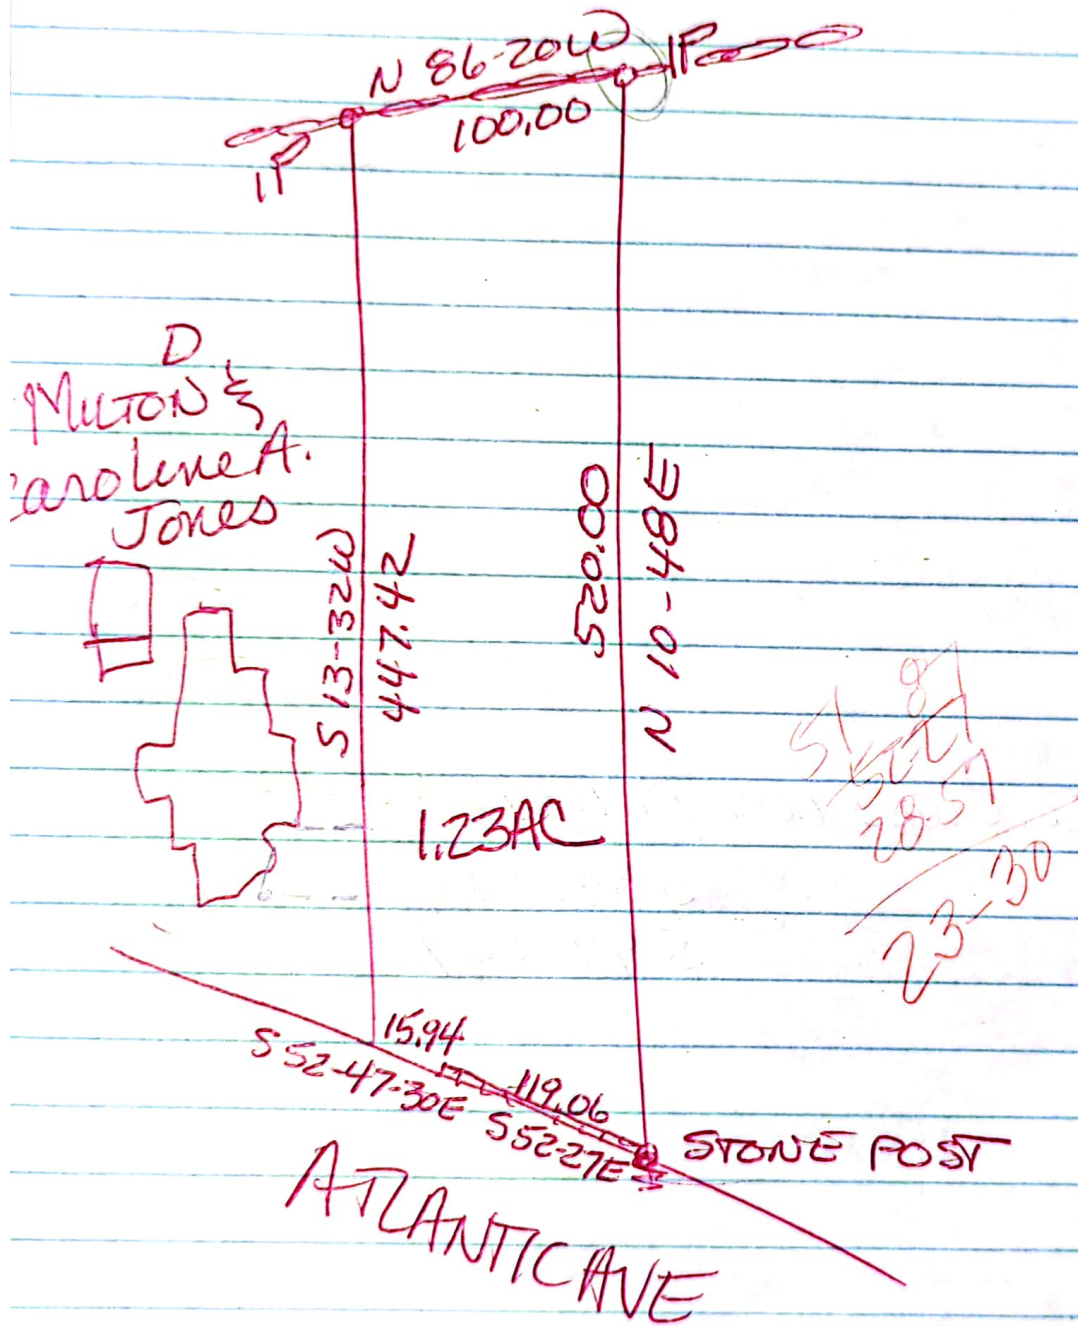 N 86-20W
IP
100.00
IP
D
MILTON &
Caroline A.
Jones
S 13-32W
447.42
520.00
N 10-48E
1.23AC
87
51
28 57
23-30
15.94
S 52-47-30E
119.06
S 52-27E
STONE POST
ATLANTIC AVE